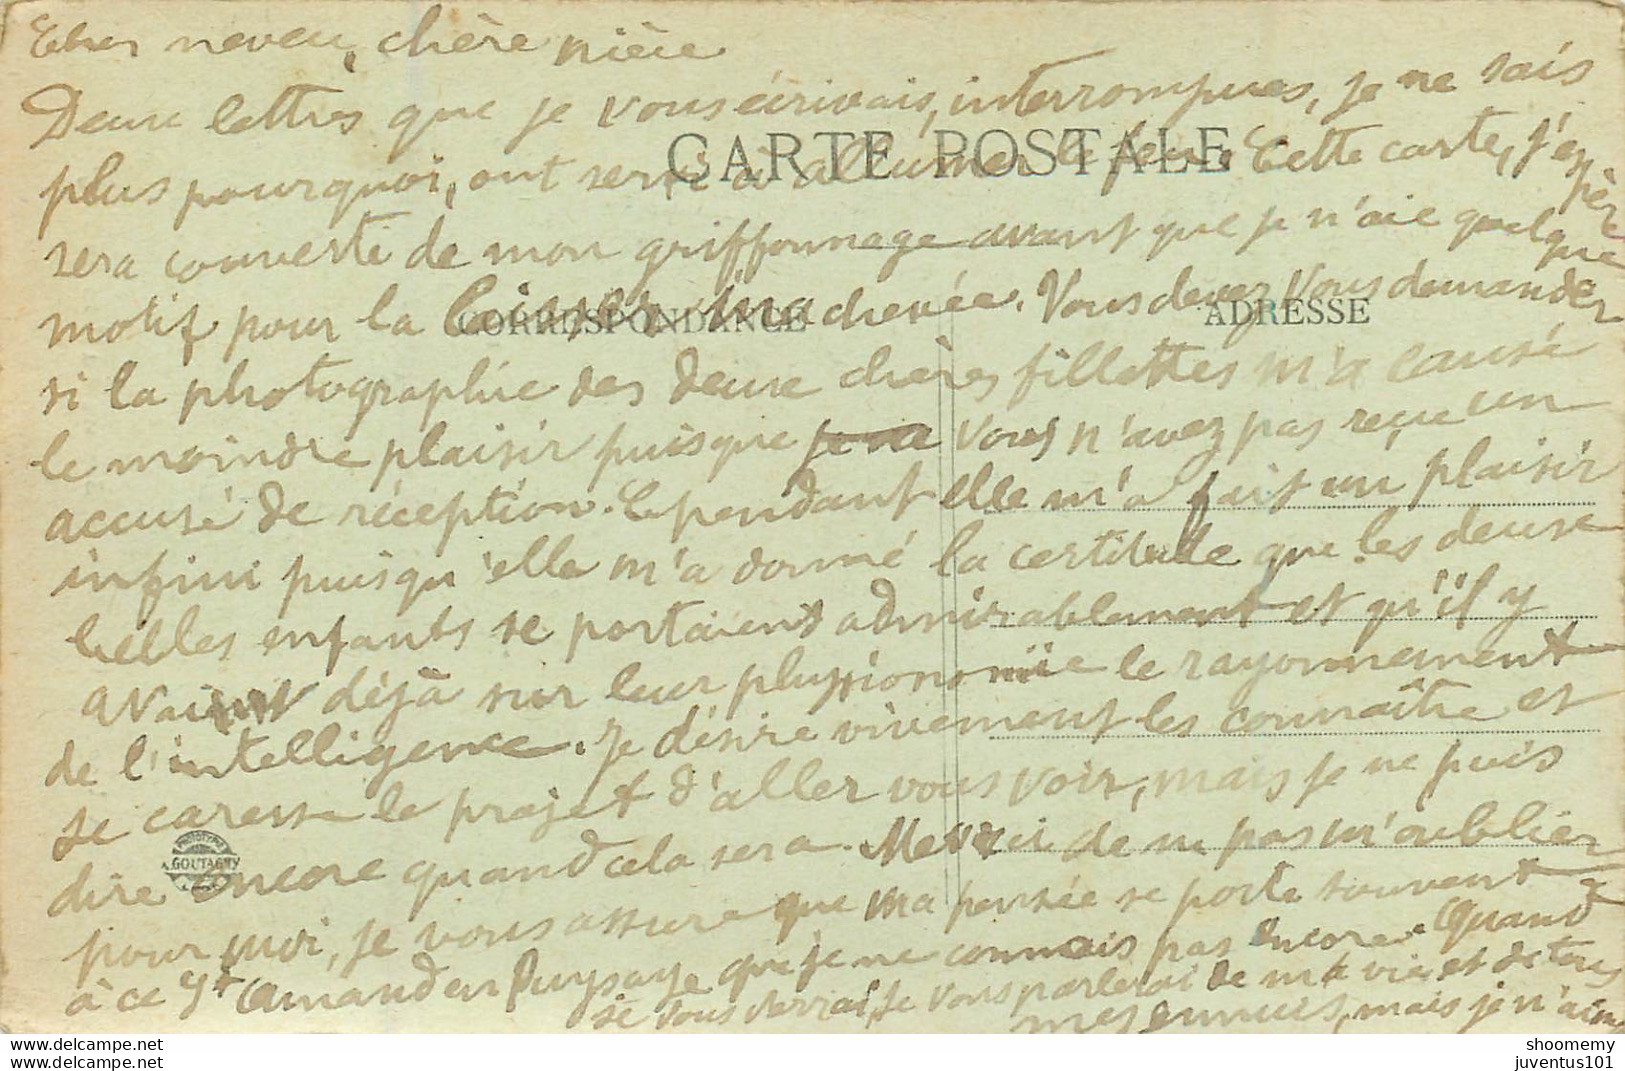 Cher neveu, chère nièce
Deux lettres que je vous écrivais, interrompues, je ne sais
plus pourquoi, ont servi à allumer le feu. Cette carte, j'espère
CARTE POSTALE
sera couverte de mon griffonnage avant que je n'aie quelque
motif pour la laisser inachevée. Vous devez vous demander
CORRESPONDANCE
ADRESSE
si la photographie des deux chères fillettes m'a causé
le moindre plaisir puisque je ne vous n'avez pas reçu un
accusé de réception. Cependant elle m'a fait un plaisir
infini puisqu'elle m'a donné la certitude que les deux
belles enfants se portaient admirablement et qu'il y
avait déjà sur leur physionomie le rayonnement
de l'intelligence. Je désire vivement les connaître et
je caresse le projet d'aller vous voir, mais je ne puis
dire encore quand cela sera. Merci de ne pas m'oublier
PHOTOTYPIE
GOUTAGNY
pour moi, je vous assure que ma pensée se porte souvent
à ce St Amand en Puysaye que je ne connais pas encore. Quand
je vous verrai, je vous parlerai de ma vie et de tous
mes ennuis, mais je n'aime
Avant de vendre
Avant de vendre
shoomemy
juventus101